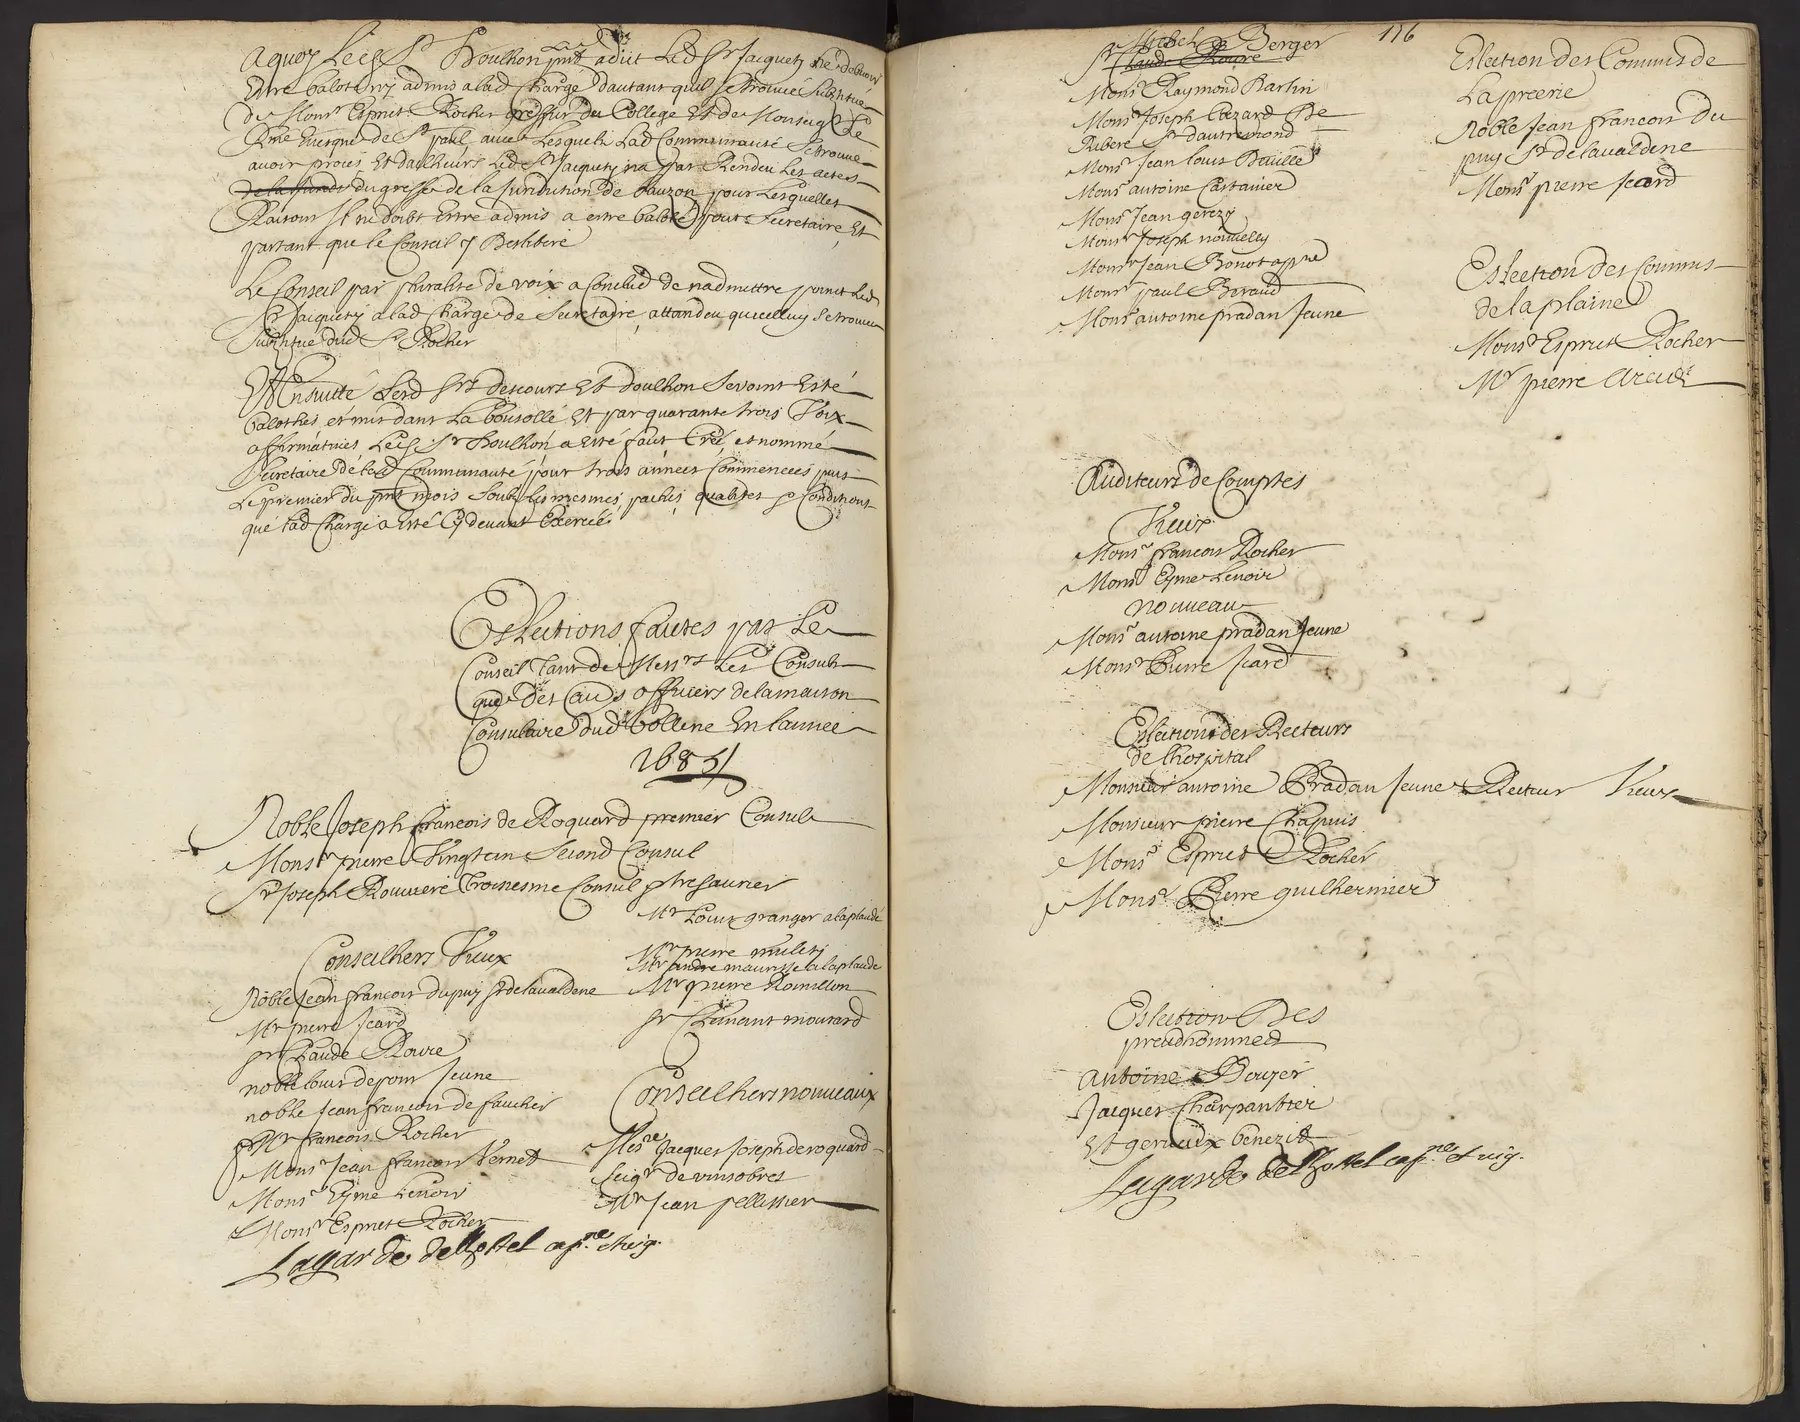 aquoy Led Sr Doulhon pnt a dit Led Sr Jacquety ne debvoir
Estre baloté ny admis a lad Charge dautant quil se trouve substitué
de Monsr Esprit Rocher greffier du College Et de Monseigr Le
Rme Evesque de St paul avec Lesquels Lad Communauté se trouve
avoir proces Et dailheurs Led Sr Jacquety na pas Rendeu Les actes
du greffe de la Juridiction de bauzon pour Lesquelles
Raisons Il ne doibt Estre admis a estre balotté pour Secretaire Et
partant que le Conseil y Deslibere
Le Conseil par pluralité de voix a Conclud de nadmettre point Led
Sr Jacquety a lad Charge de Secretaire attandeu quicelluy se trouve
substitué dud Sr Rocher
Et Ensuitte Lesd Srs descours Et doulhon Seroint Esté
balothés et mis dans La boussolle Et par quarante trois Voix
affirmatives Led Sr Doulhon a Esté fait Creé et nommé
Secretaire de lad Communauté pour trois années Commencées puis
Le premier du pnt mois soubs les mesmes pactes qualités & Conditions
que lad Charge a Esté Cy devant Exercée
Eslections faites par Le
Conseil Tant de Messrs Les Consuls
que des officiers de la maison
Consulaire dud Bollene En lannee
1685
Noble Joseph francois de Roquard premier Consul
Monsr pierre Vingtain Second Consul
Sr Joseph Rouviere Troisiesme Consul & thresaurier
Conseilhers Vieux
Noble Jean francois dupuy Sr de lavaldene
Mr pierre Icard
Sr Claude Roure
noble louis de pour Jeune
noble Jean francois de faucher
Mr francois Rocher
Monsr Jean francois Vernet
Monsr Eyme Lenoir
Monsr Esprit Rocher
Mr Louis granger a la plaude
Mr pierre milety
Mr andre maurisse a la plaude
Mr pierre Romillon
Sr Clement mourard
Conseilhers nouveaux
Messre Jacques Joseph de roquard
Seigr de vinsobres
Mr Jean pellissier
Lagarde dellhostel capne et vig.
116
Michel Berger
Sr Claude Roure
Monsr Raymond Martin
Monsr Joseph Cazard De
Ribere Sr dautremond
Monsr Jean louis Baille
Monsr antoine Castanier
Monsr Jean gerezy
Monsr Joseph nouvelly
Monsr Jean Bonot appre
Monsr paul Beraud
Monsr antoine pradan Jeune
Auditeurs de Comptes
Vieux
Monsr francois Rocher
Monsr Eyme Lenoir
nouveau
Monsr antoine pradan Jeune
Monsr Pierre Icard
Eslection des Recteurs
de lhospital
Monsieur antoine Pradan Jeune Recteur Vieux
Monsieur pierre Chapuis
Monsr Esprit Rocher
Monsr Pierre guilhermier
Eslection Des
preudhommes
Antoine Bouyer
Jacques Charpantier
Et gervaix benezit
Lagarde dellhostel capne et vig.
Eslection des Commis de
La preerie
Noble Jean francois du
puy Sr de lavaldene
Monsr pierre Icard
Eslection des Commis
de la plaine
Monsr Esprit Rocher
Mr pierre